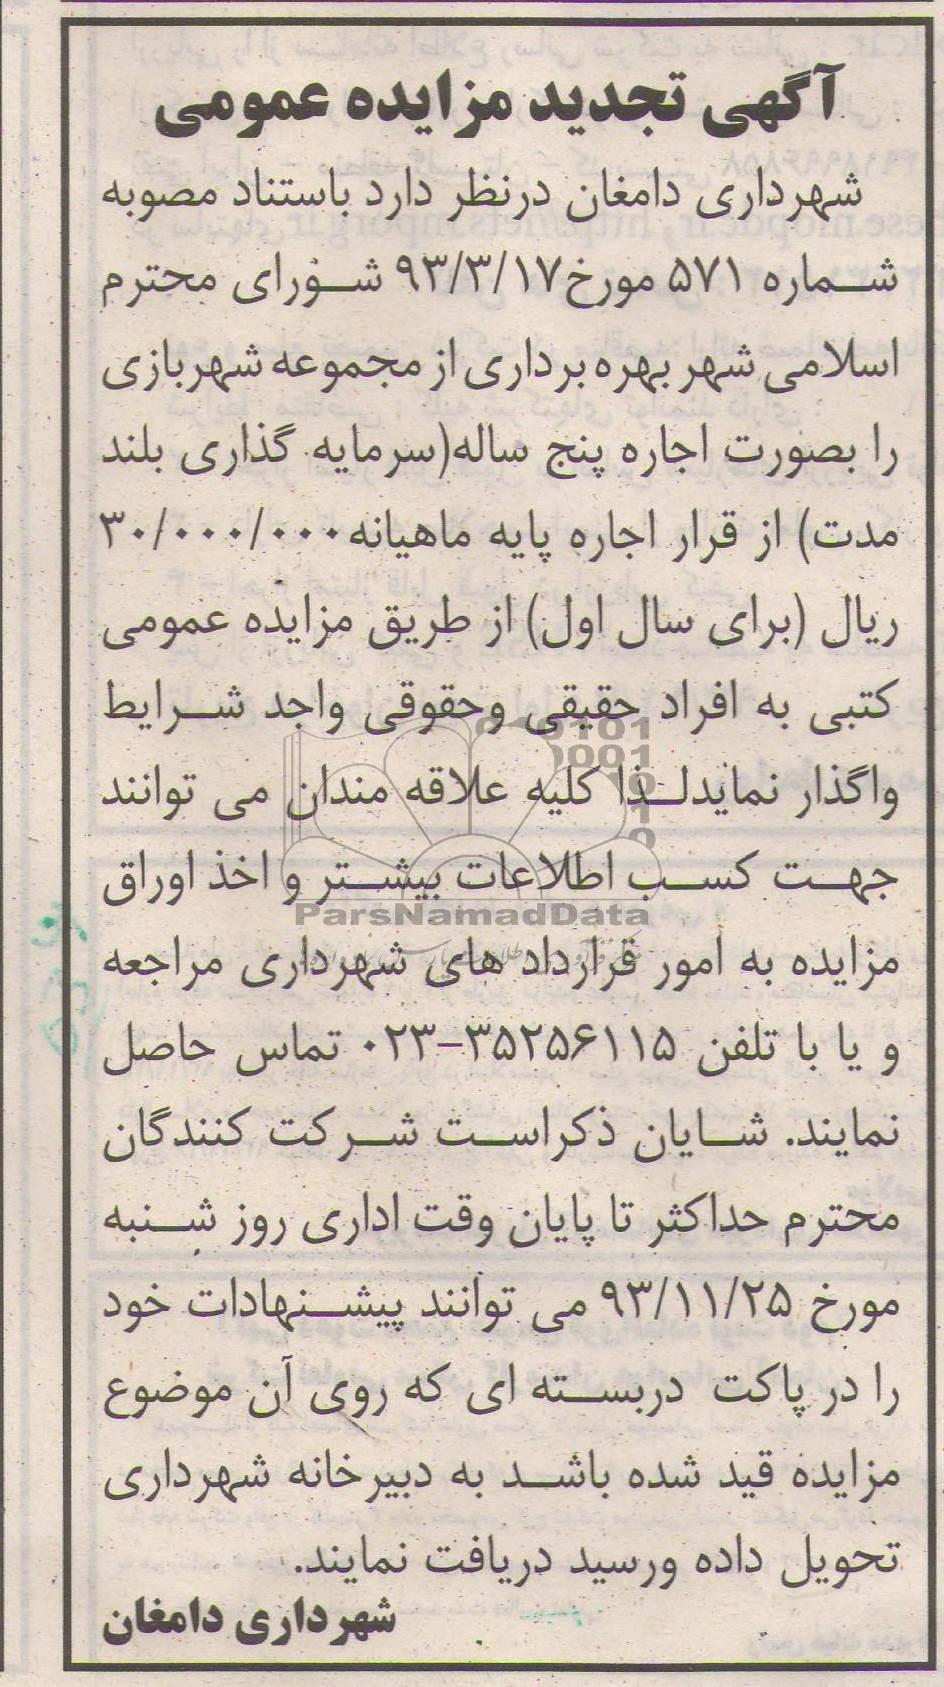 آگهی تجدید مزایده عمومی
شهرداری دامغان درنظر دارد باستناد مصوبه
شماره ۵۷۱ مورخ ۹۳/۳/۱۷ شورای محترم
اسلامی شهر بهره برداری از مجموعه شهربازی
را بصورت اجاره پنج ساله(سرمایه گذاری بلند
مدت) از قرار اجاره پایه ماهیانه ۳۰/۰۰۰/۰۰۰
ریال (برای سال اول) از طریق مزایده عمومی
کتبی به افراد حقیقی وحقوقی واجد شرایط
واگذار نمایدلذا کلیه علاقه مندان می توانند
جهت کسب اطلاعات بیشتر و اخذ اوراق
ParsNamadData
مزایده به امور قرارداد های شهرداری مراجعه
و یا با تلفن ۳۵۲۵۶۱۱۵-۰۲۳ تماس حاصل
نمایند. شایان ذکراست شرکت کنندگان
محترم حداکثر تا پایان وقت اداری روز شنبه
مورخ ۹۳/۱۱/۲۵ می توانند پیشنهادات خود
را در پاکت دربسته ای که روی آن موضوع
مزایده قید شده باشد به دبیرخانه شهرداری
تحویل داده ورسید دریافت نمایند.
شهرداری دامغان